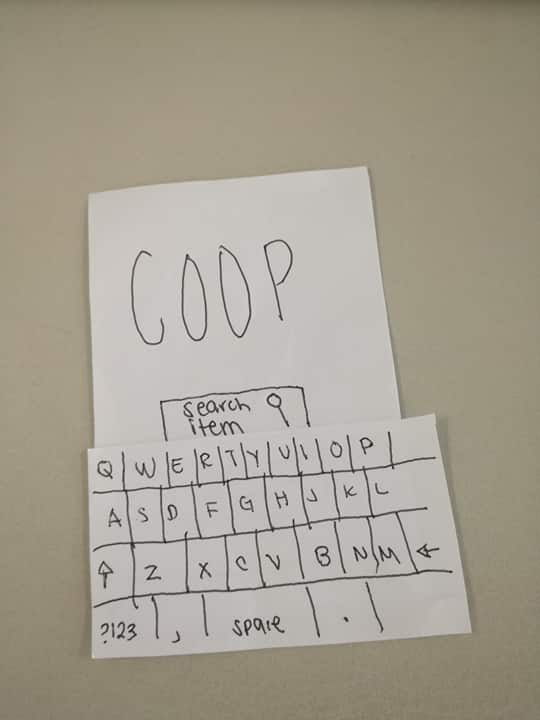 COOP
search
item
Q W E R T Y U I O P
A S D F G H J K L
Z X C V B N M
?123 , space .